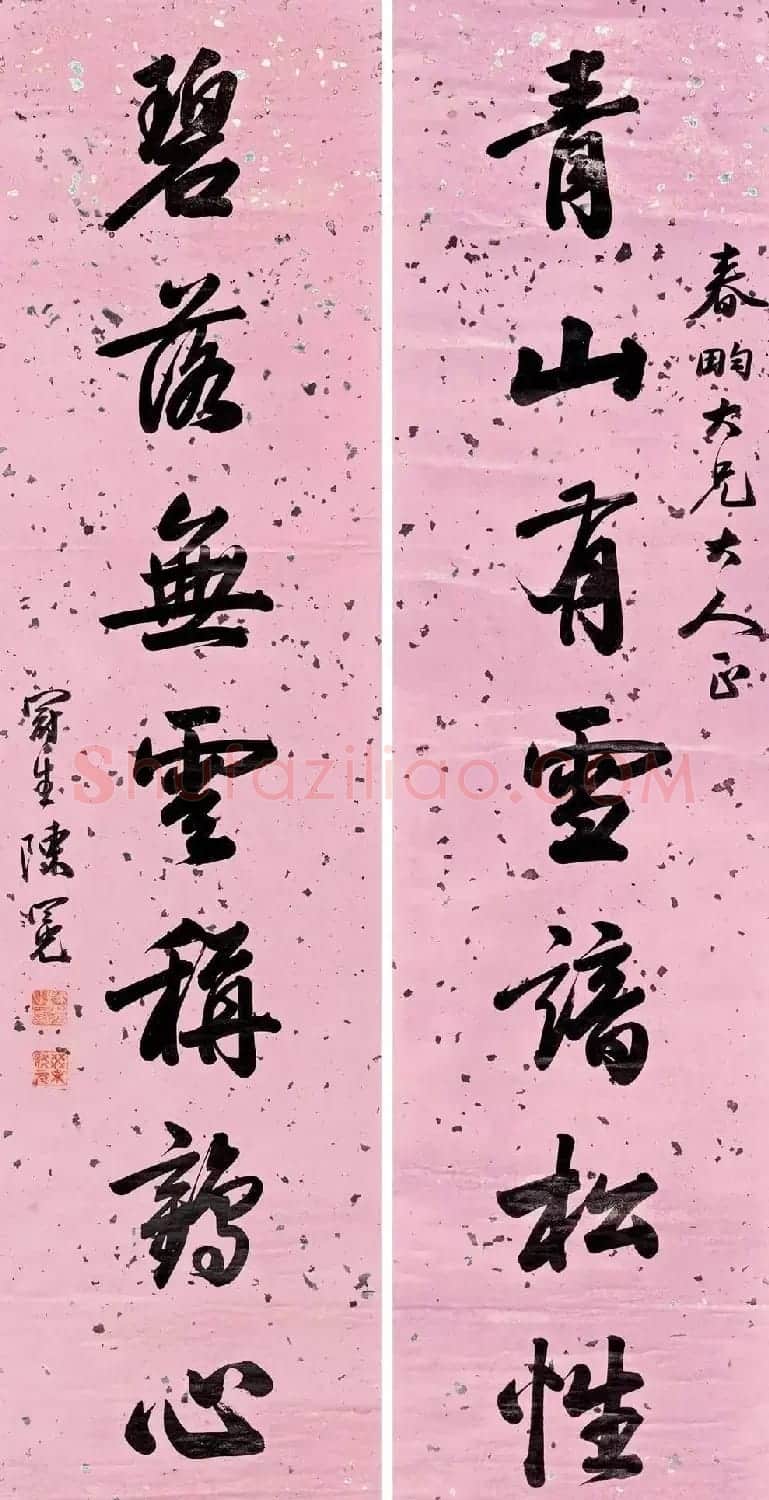 春畇大兄大人正
青山有雪諳松性
碧落無雲稱鶴心
陳冕
Shufaziliao.COM